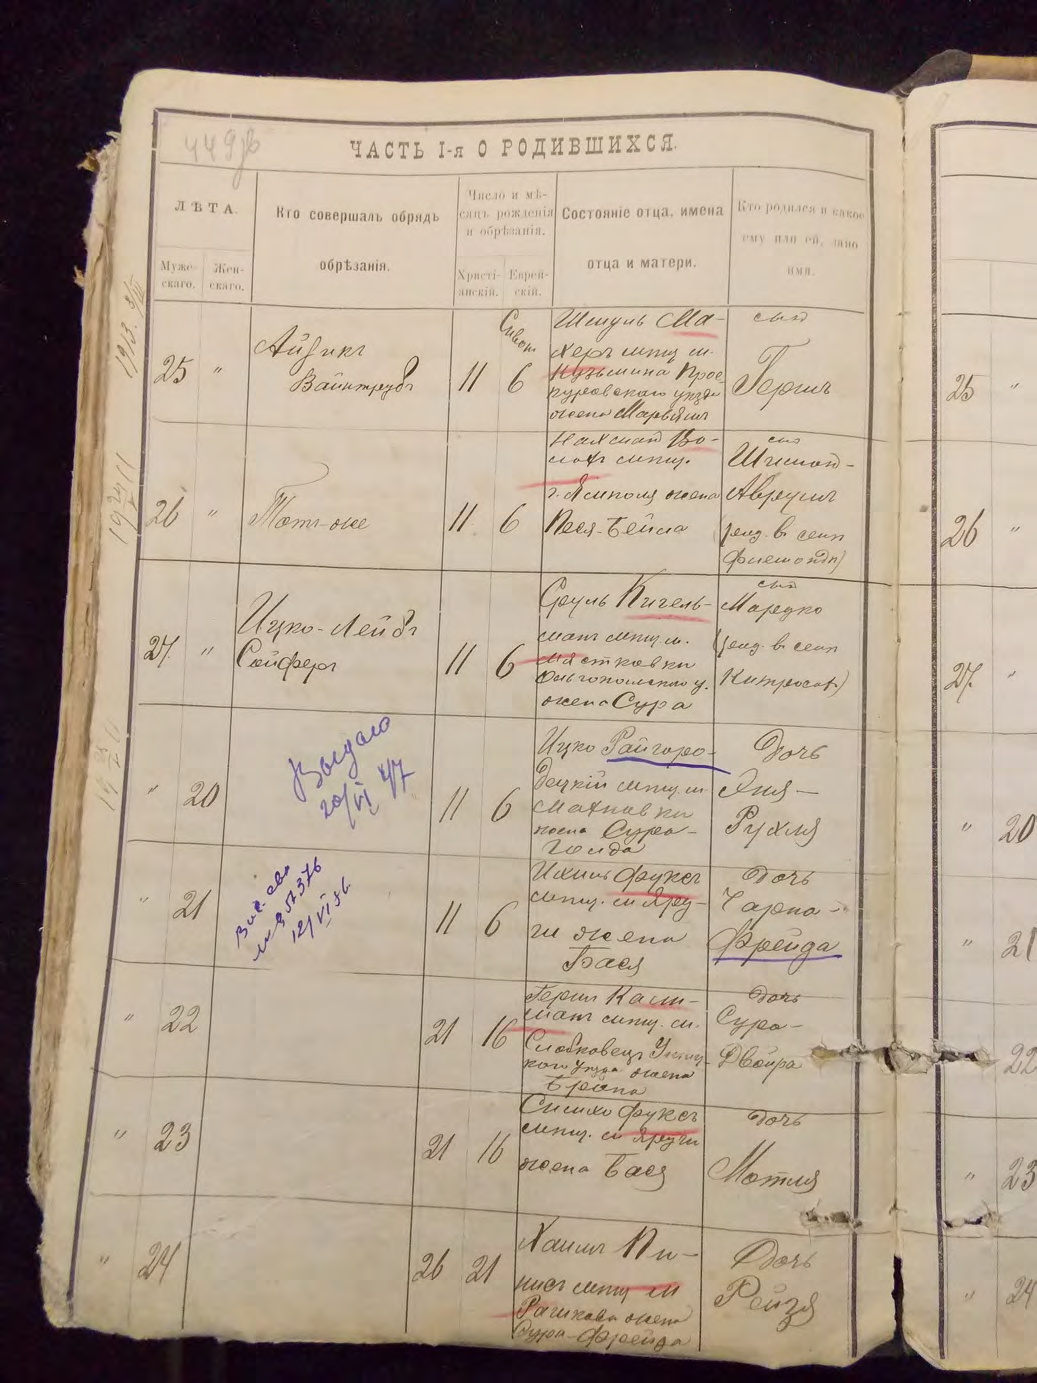 449
ЧАСТЬ I-я О РОДИВШИХСЯ.
ЛѢТА.
Муже-
скаго.
Жен-
скаго.
Кто совершалъ обрядъ
обрѣзанія.
Число и мѣ-
сяцъ рожденія
и обрѣзанія.
Христі-
анскій.
Еврей-
скій.
Состояніе отца, имена
отца и матери.
Кто родился и какое
ему или ей, дано
имя.
25 "
Айзикъ
Вайнтрубъ
11
6
Шмуль Ма-
херъ мѣщ. м.
Кузьмина Прос-
куровскаго уѣзда
жена Марьямъ
сынъ
Гершъ
25 "
26 "
Тотъ-же
11 6
Нахманъ Во-
лохъ мѣщ.
г. Ямполя жена
Песя-Бейла
сынъ
Шимон-
Авремъ
26 "
27. "
Ицко-Лейбъ
Сойферъ
11 6
Сруль Кигель-
манъ мѣщ. м.
Мястковки
Ольгопольскаго у.
жена Сура
сынъ
Мардко
27. "
" 20
Выдано
20/VI 47
11 6
Ицко Райгоро-
децкій мѣщ. м
Махновки
жена Сура-
Голда
Дочь
Хня-
Рухля
" 20
" 21
12/VI 56.
11 6
Ихиль Фуксъ
мѣщ. м Яру-
ги жена
Бася
Дочь
Чарна-
Фрейда
" 21
" 22
21 16
Гершъ Кали-
манъ мѣщ. м.
Слобковецъ Ушиц-
кого уѣзда жена
Брайна
Дочь
Сура-
Двойра
22
" 23
21 16
Симхо Фуксъ
мѣщ. м Яруги
жена Бася
Дочь
Мотля
" 23
" 24
26 21
Хаимъ Пи-
нисъ мѣщ м
Рашкова жена
Сура-Фрейда
Дочь
Рейзя
" 24